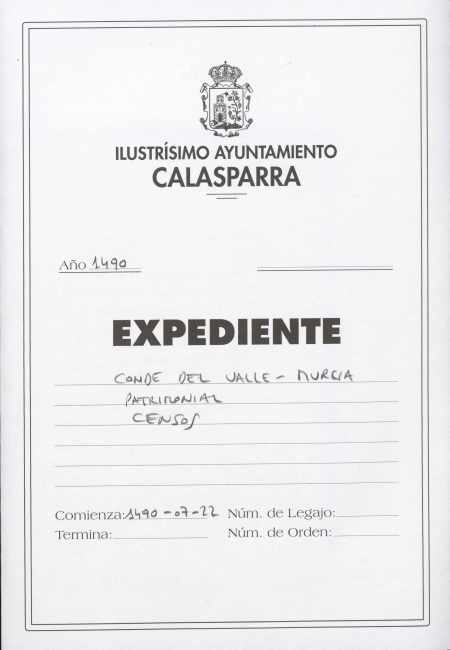 ILUSTRÍSIMO AYUNTAMIENTO
CALASPARRA
Año 1490
EXPEDIENTE
CONDE DEL VALLE - MURCIA
PATRIMONIAL
CENSOS
Comienza: 1490-07-22 Núm. de Legajo:
Termina: Núm. de Orden: